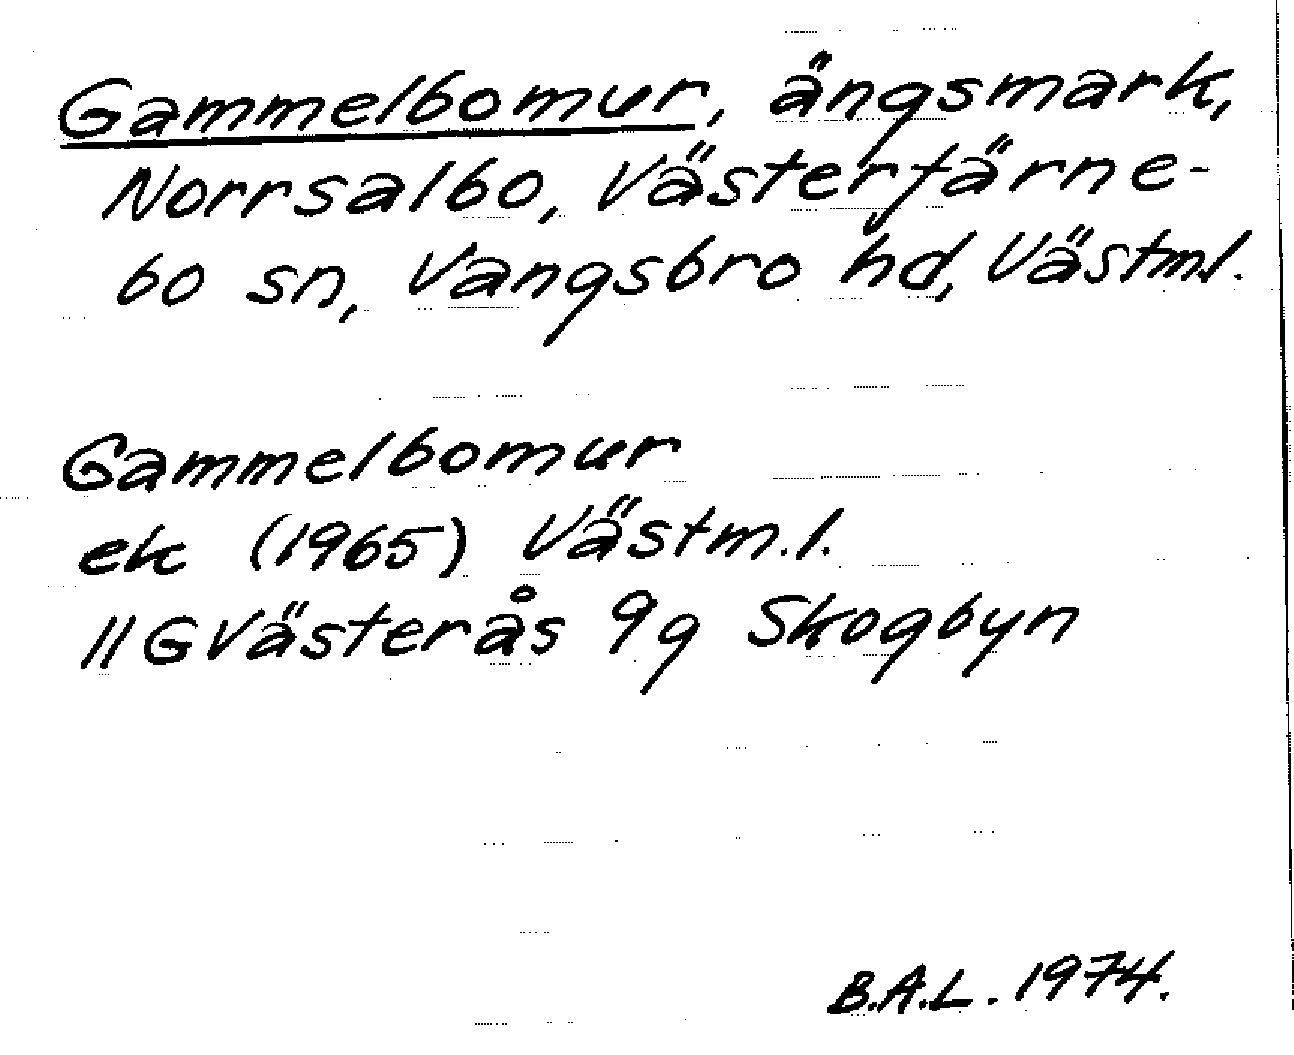 Gammelbomur, ängsmark,
Norrsalbo, Västerfärne-
bo sn, Vangsbro hd, Västml.
Gammelbomur
ek (1965) Västm.l.
11G Västerås 9g Skogbyn
B.A.L. 1974.